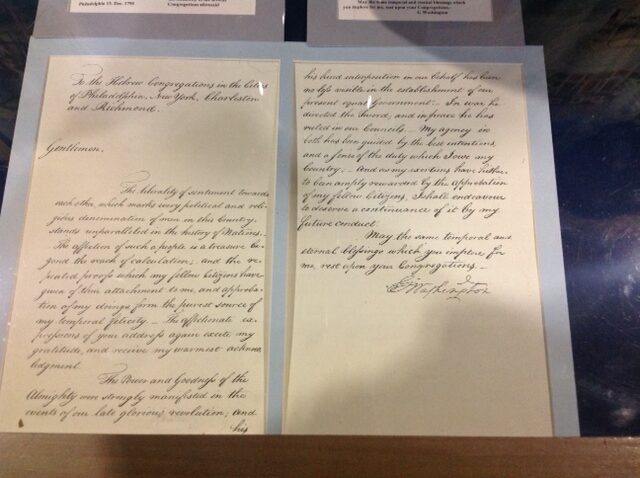 Philadelphia 13. Dec. 1790
Congregations aforesaid
May the same temporal and eternal blessings which
you implore for me, rest upon your Congregations.
G. Washington
To the Hebrew Congregations in the Cities
of Philadelphia, New York, Charleston
and Richmond.
Gentlemen.
The liberality of sentiment towards
each other, which marks every political and reli-
gious denomination of men in this Country,
stands unparalleled in the history of Nations.
The affection of such a people is a treasure be-
yond the reach of calculation; and the re-
peated proofs which my fellow Citizens have
given of their attachment to me, and approba-
tion of my doings form the purest source of
my temporal felicity. — The affectionate ex-
pressions of your address again excite my
gratitude, and receive my warmest acknow-
ledgment.
The Power and Goodness of the
Almighty were strongly manifested in the
events of our late glorious revolution; and
his
his kind interposition in our behalf has been
no less visible in the establishment of our
present equal Government. — In war he
directed the Sword; and in peace he has
ruled in our Councils. — My agency in
both has been guided by the best intentions,
and a sense of the duty which I owe my
Country: — And as my exertions have hither-
to been amply rewarded by the approbation
of my fellow Citizens, I shall endeavour
to deserve a continuance of it by my
future conduct.
May the same temporal and
eternal blessings which you implore for
me, rest upon your Congregations. —
G. Washington